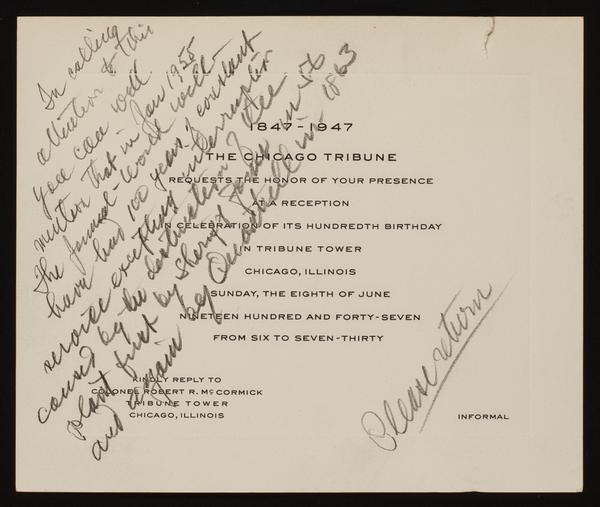 In calling
attention to this
you can well
mention that in Jan 1955
the Journal-World will
have had 100 years of constant
service excepting interruption
caused by the destruction of the
plant first by Sheriff Jones in 56
and again by Quantrell in 1863
1847-1947
THE CHICAGO TRIBUNE
REQUESTS THE HONOR OF YOUR PRESENCE
AT A RECEPTION
IN CELEBRATION OF ITS HUNDREDTH BIRTHDAY
IN TRIBUNE TOWER
CHICAGO, ILLINOIS
SUNDAY, THE EIGHTH OF JUNE
NINETEEN HUNDRED AND FORTY-SEVEN
FROM SIX TO SEVEN-THIRTY
KINDLY REPLY TO
COLONEL ROBERT R. McCORMICK
TRIBUNE TOWER
CHICAGO, ILLINOIS
INFORMAL
Please return